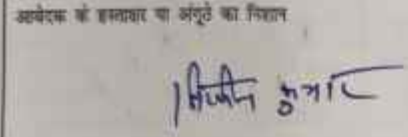 आवेदक के हस्ताक्षर या अंगूठे का निशान
कुमार